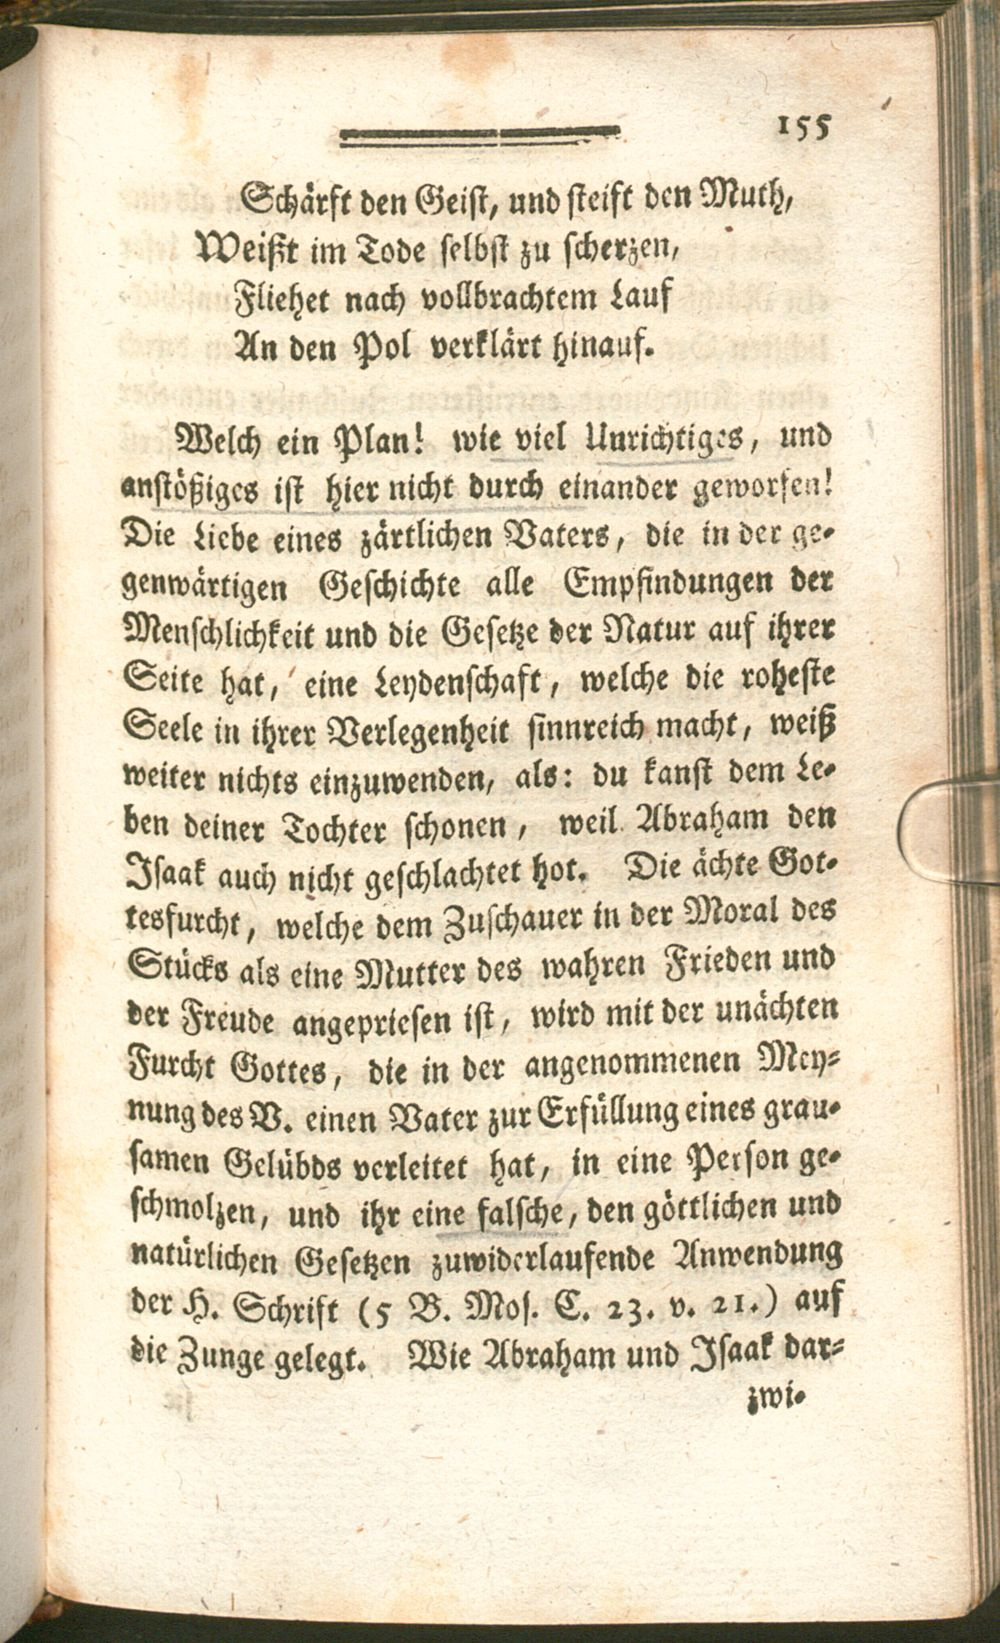 155
Schärft den Geist, und steift den Muth,
Weißt im Tode selbst zu scherzen,
Fliehet nach vollbrachtem Lauf
An den Pol verklärt hinauf.
Welch ein Plan! wie viel Unrichtiges, und
anstößiges ist hier nicht durch einander geworfen!
Die Liebe eines zärtlichen Vaters, die in der ge-
genwärtigen Geschichte alle Empfindungen der
Menschlichkeit und die Gesetze der Natur auf ihrer
Seite hat, eine Leydenschaft, welche die roheste
Seele in ihrer Verlegenheit sinnreich macht, weiß
weiter nichts einzuwenden, als: du kanst dem Le-
ben deiner Tochter schonen, weil Abraham den
Isaak auch nicht geschlachtet hot. Die ächte Got-
tesfurcht, welche dem Zuschauer in der Moral des
Stücks als eine Mutter des wahren Frieden und
der Freude angepriesen ist, wird mit der unächten
Furcht Gottes, die in der angenommenen Mey-
nung des V. einen Vater zur Erfüllung eines grau-
samen Gelübds verleitet hat, in eine Person ge-
schmolzen, und ihr eine falsche, den göttlichen und
natürlichen Gesetzen zuwiderlaufende Anwendung
der H. Schrift (5 B. Mos. C. 23. v. 21.) auf
die Zunge gelegt. Wie Abraham und Isaak dar-
zwi-